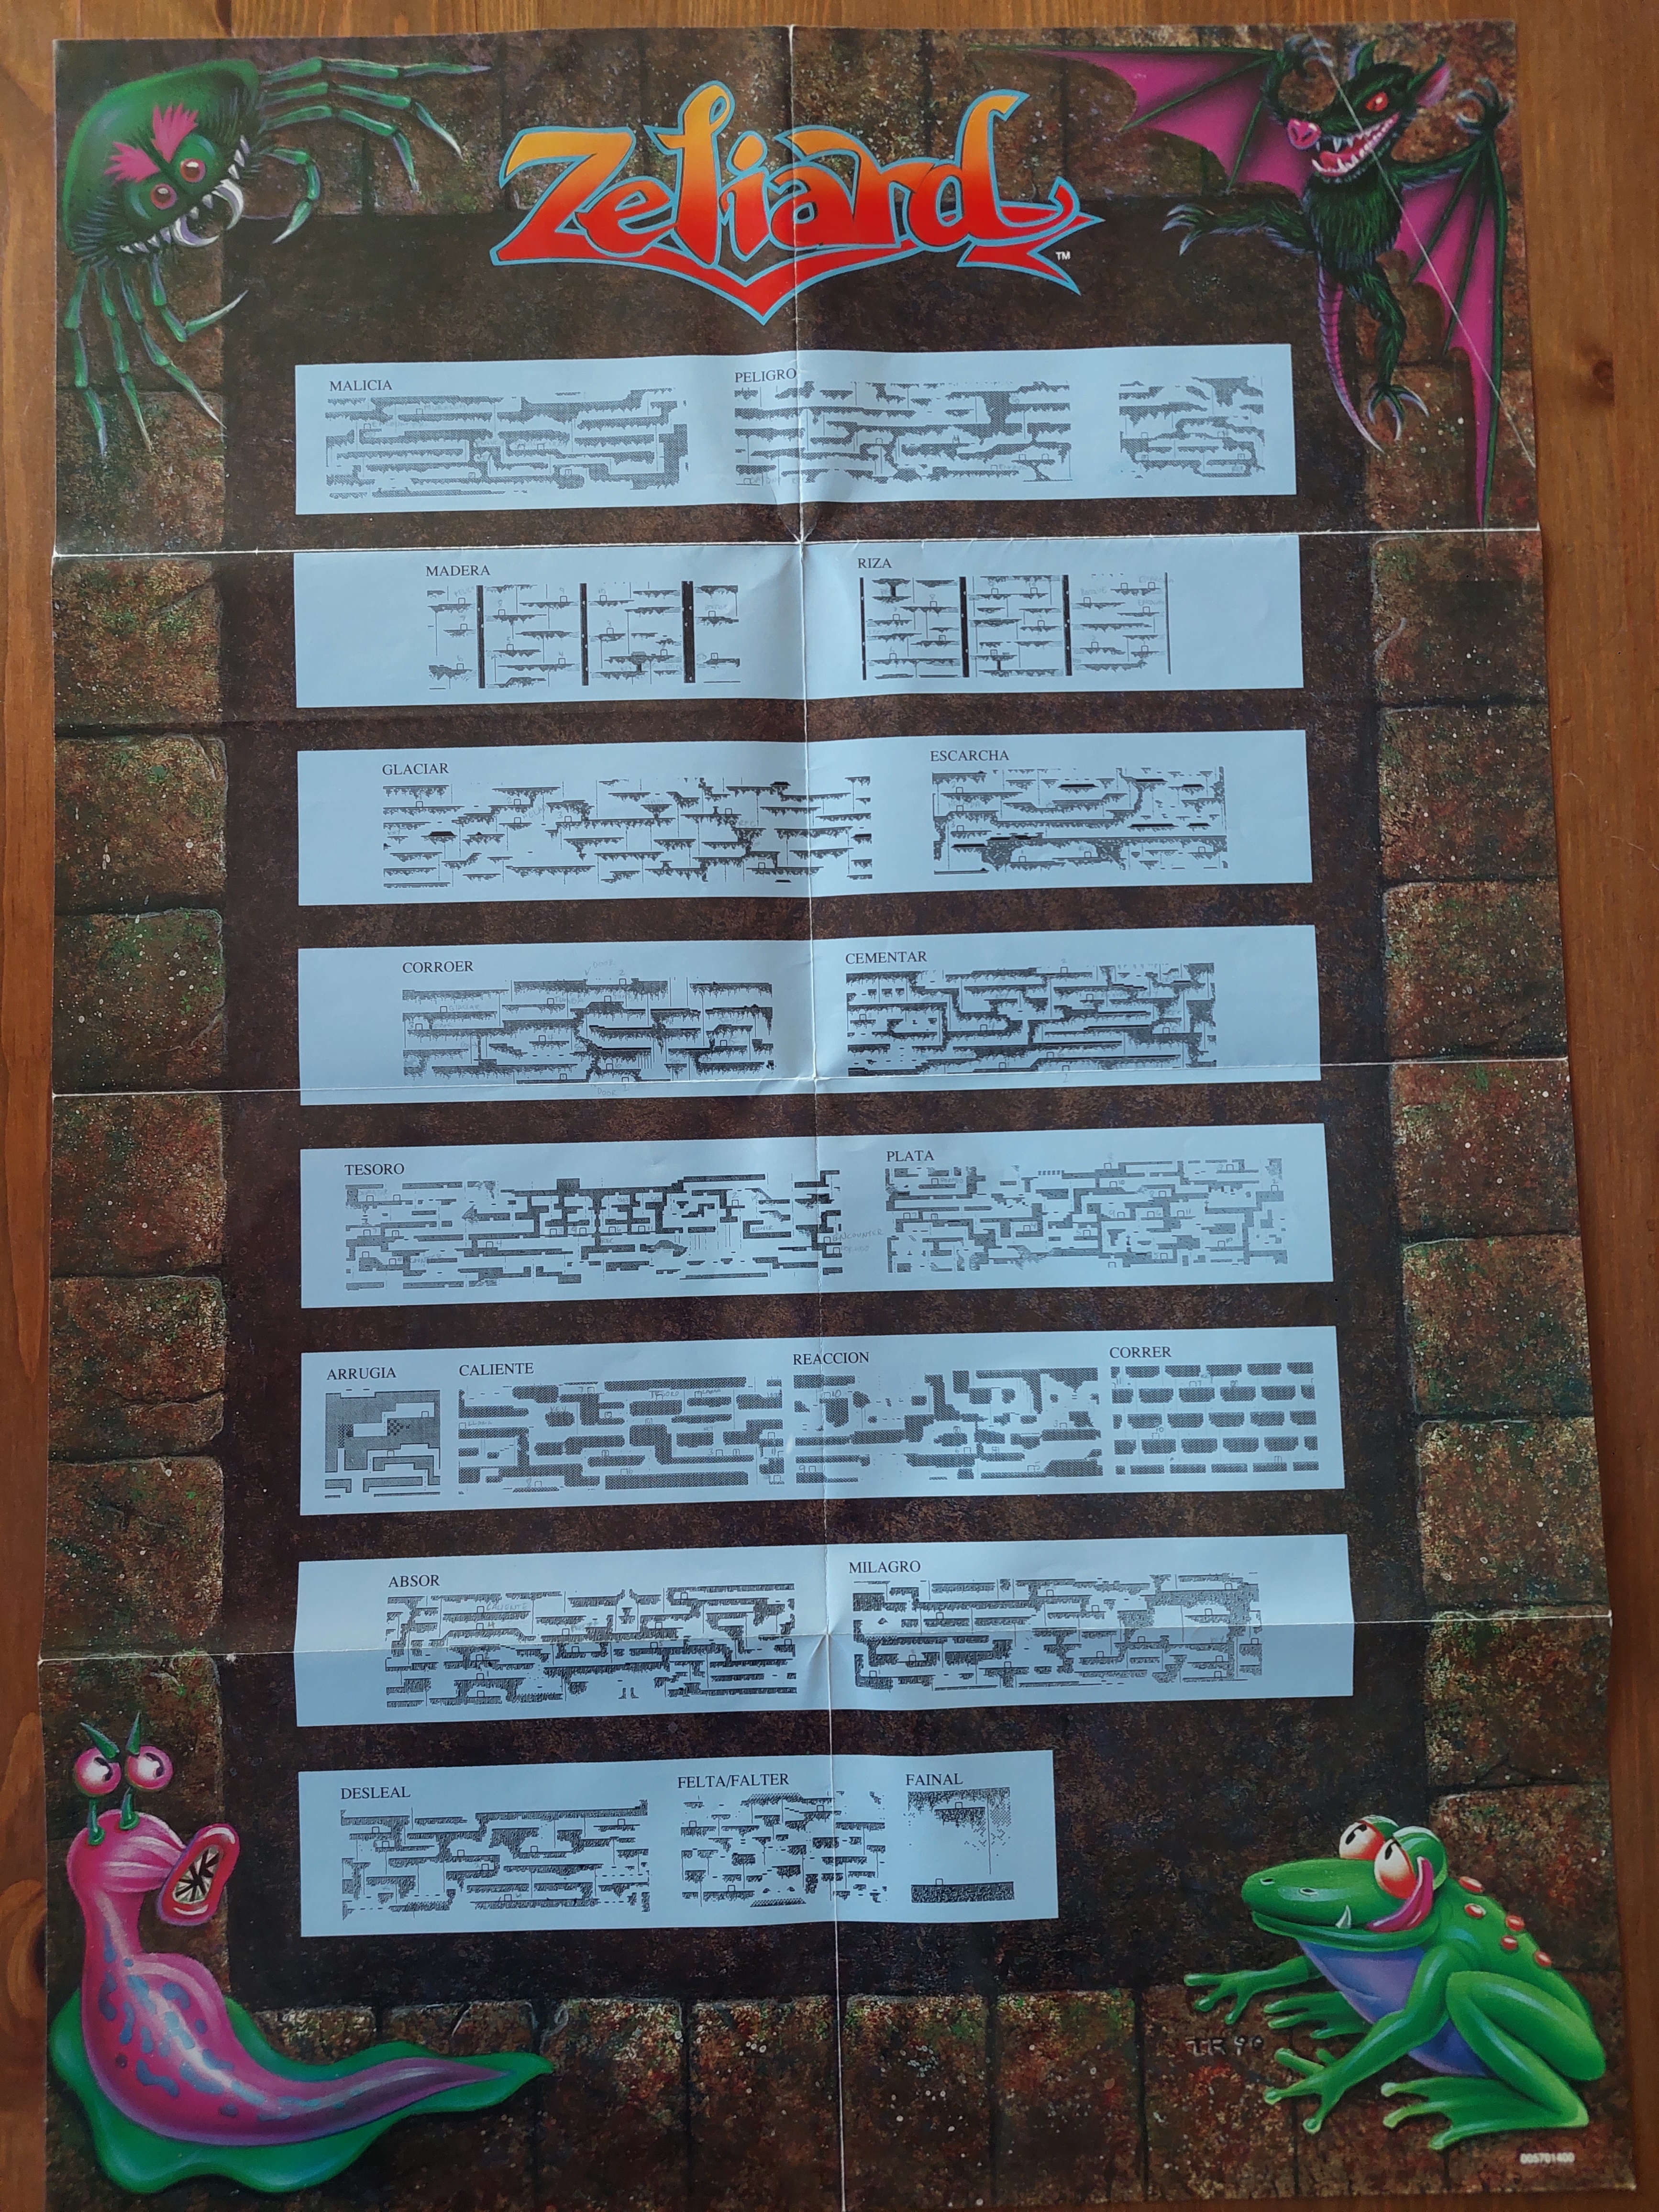 Zeliard
TM
MALICIA
PELIGRO
MADERA
RIZA
GLACIAR
ESCARCHA
CORROER
CEMENTAR
TESORO
PLATA
ARRUGIA
CALIENTE
REACCION
CORRER
ABSOR
MILAGRO
DESLEAL
FELTA/FALTER
FAINAL
TR 90
005701400